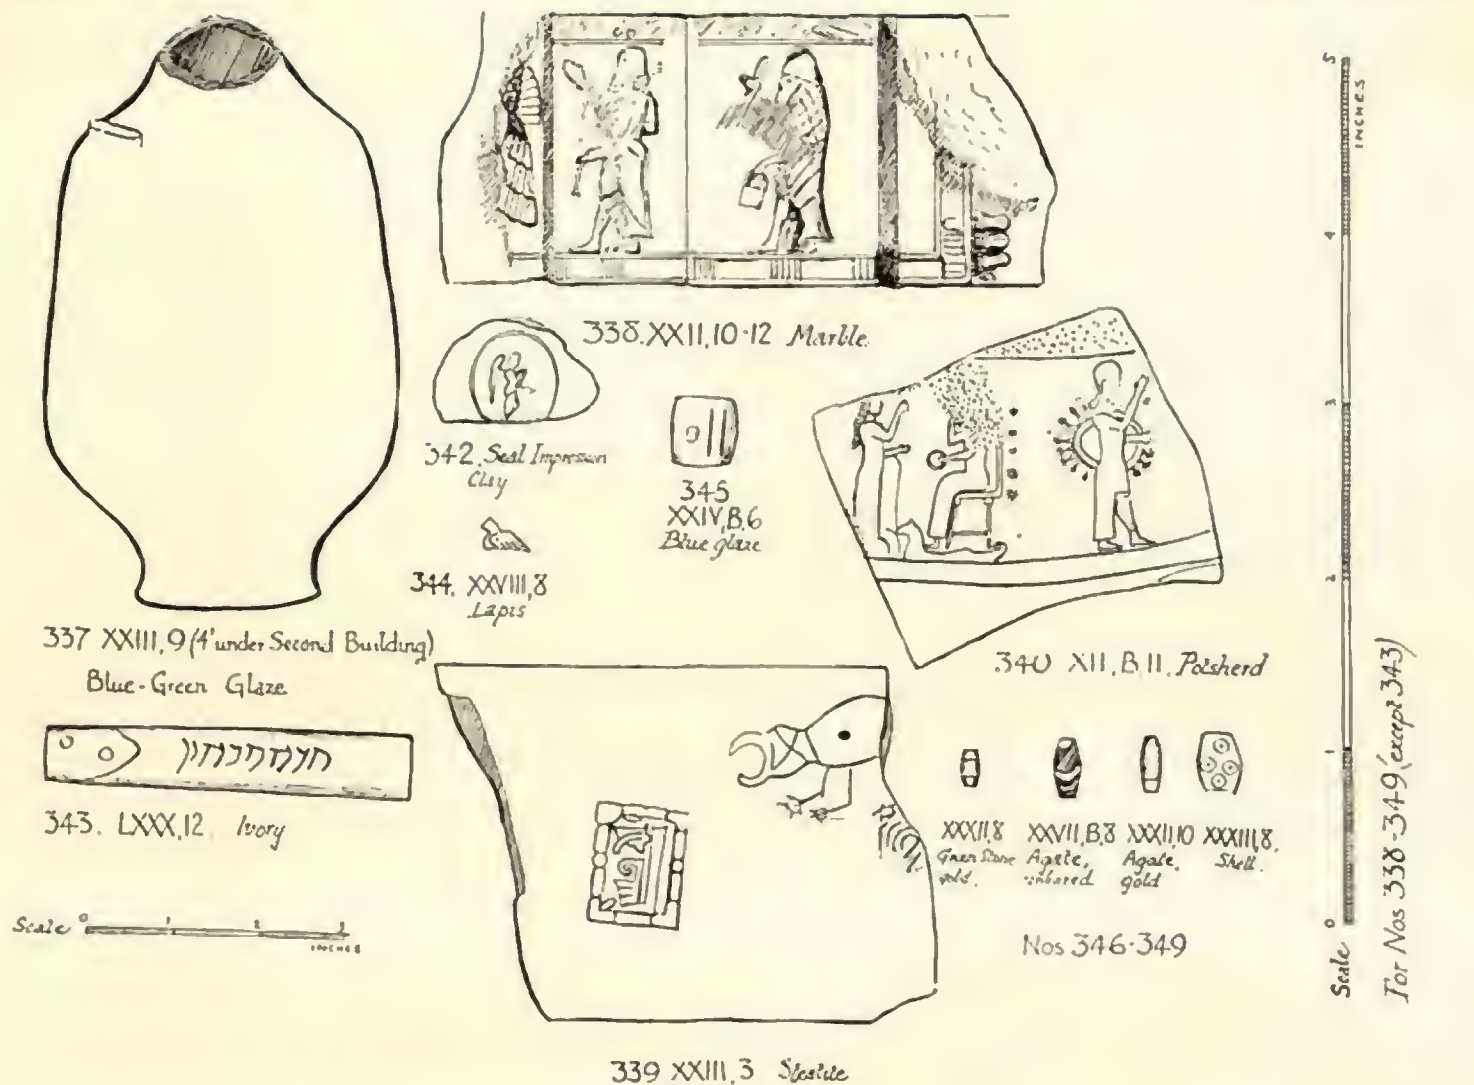 338. XXII, 10-12 Marble
342. Seal Impression
Clay
345
XXIV, B, 6
Blue glaze
344. XXVIII, 8
Lapis
337 XXIII, 9 (4' under Second Building)
Blue-Green Glaze
340 XII, B, 11. Potsherd
343. LXXX, 12. Ivory
Scale 0 1 2 3
INCHES
XXXII, 8
Green Stone
gold.
XXVII, B, 8
Agate,
XXXII, 10
Agate,
gold
XXXIII, 8.
Shell.
Nos 346-349
339 XXIII, 3 Steatite
Scale 0 1 2 3 4 5
INCHES
For Nos 338-349 (except 343)